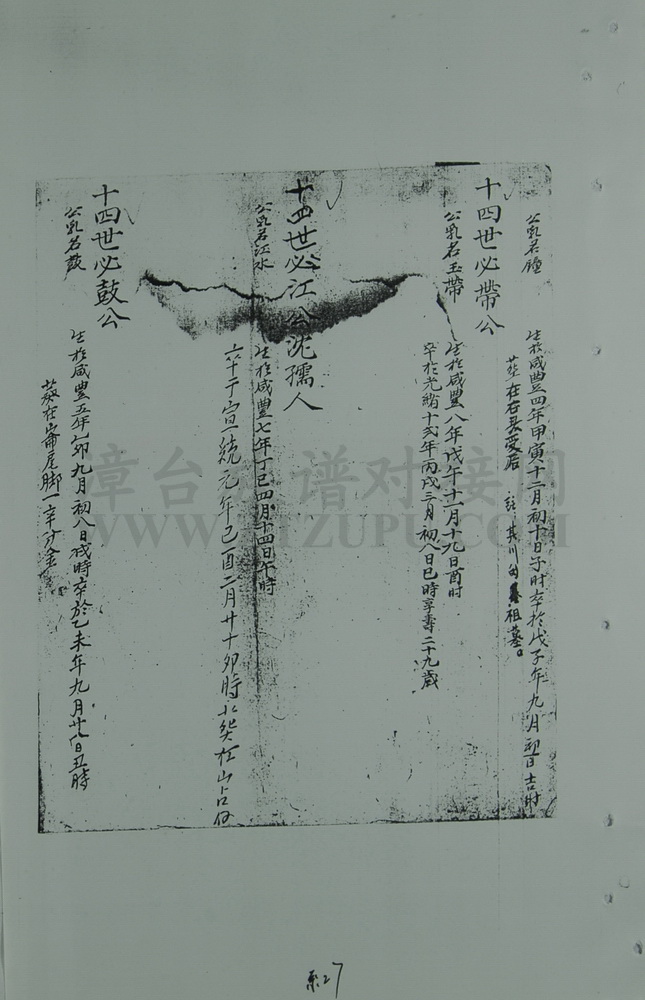 公乳名鐘
生於咸豐四年甲寅十二月初十日子时卒於戊子年九月初日吉时
葬在石
其川
祖墓。
十四世必帶公
公乳名玉帶
生於咸豐八年戊午十二月十九日酉时
卒於光緒十弍年丙戌三月初八日巳時享壽二十九歲
十四世必江公沈孺人
公乳名江水
生於咸豐七年丁巳四月十四日午時
卒于宣統元年己酉二月廿十卯時
山占
十四世必鼓公
公乳名鼓
生於咸豐五年乙卯九月初八日戌時卒於乙未年九月廿日丑時
葬在崙尾脚
漳台族谱对接网
WWW.ZTZUPU.COM
27